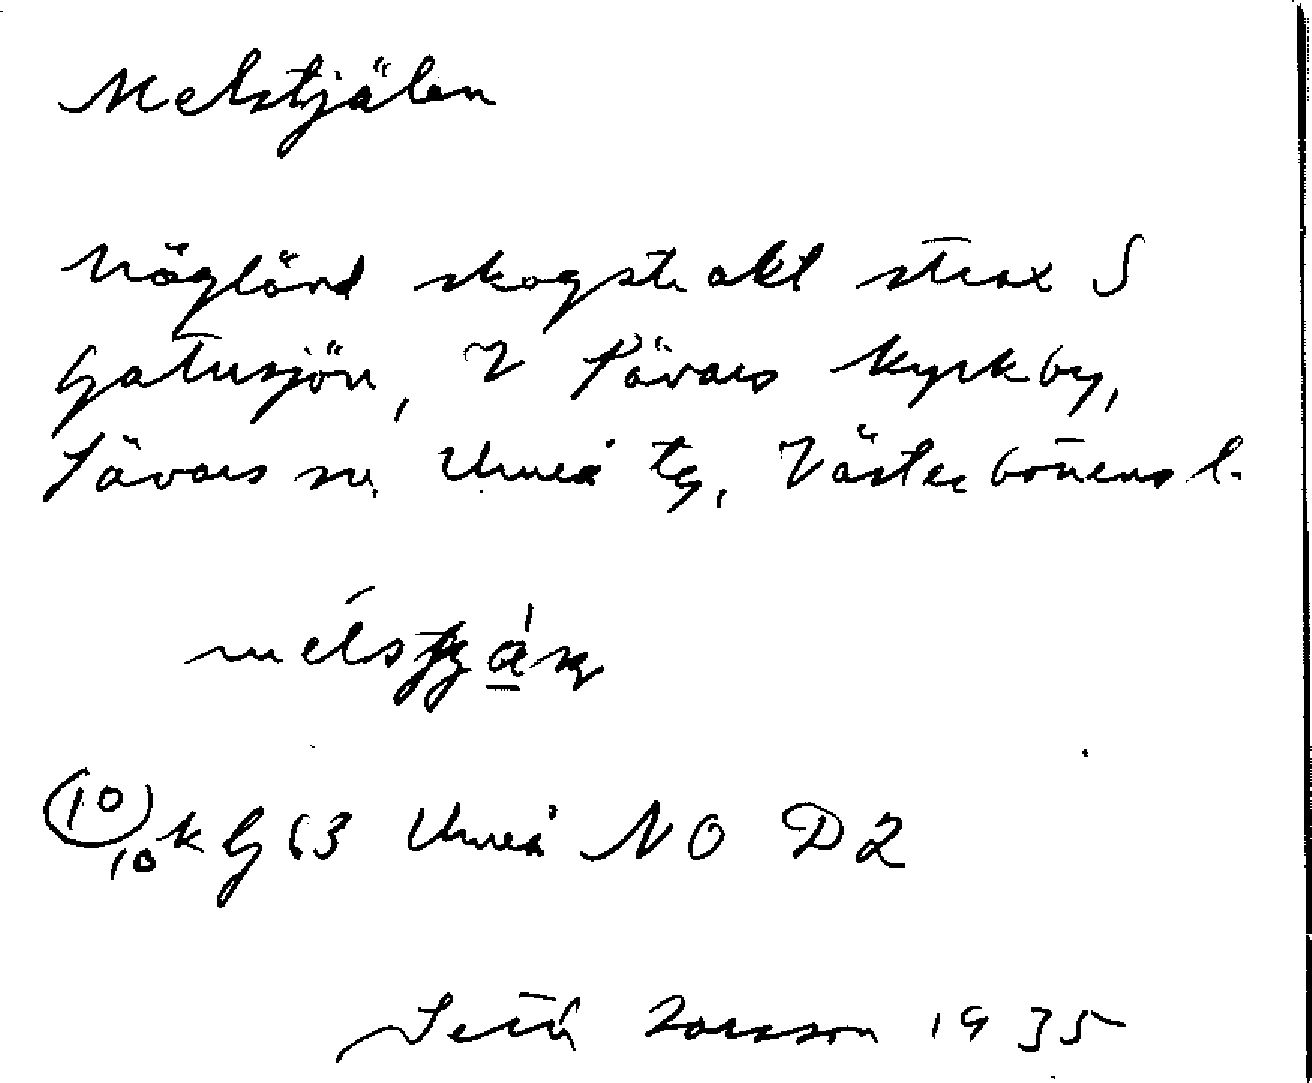 Melstjälen
Högländ skogstrakt strax S
Gatusjön, V Sävars kyrkby,
Sävars sn. Umeå tg, Västerbottens l.
10 k G 63 Umeå NO D2
Seth Larsson 1935